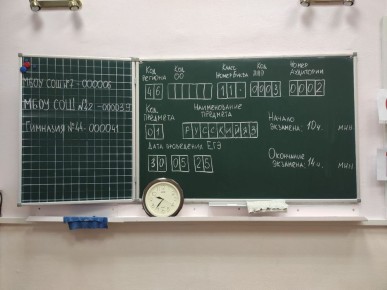 МБОУ СОШ №7 - 000006
МБОУ СОШ №2 - 000039
Гимназия №44 - 000041
Код региона Код ОО Класс Номер Буква Код ППЭ Номер аудитории
46 11. 0003 0002
Код предмета Наименование предмета
01 РУССКИЙ ЯЗ
Начало экзамена: 10 ч. мин
Дата проведения ЕГЭ
30 05 25
Окончание экзамена: 14 ч. мин